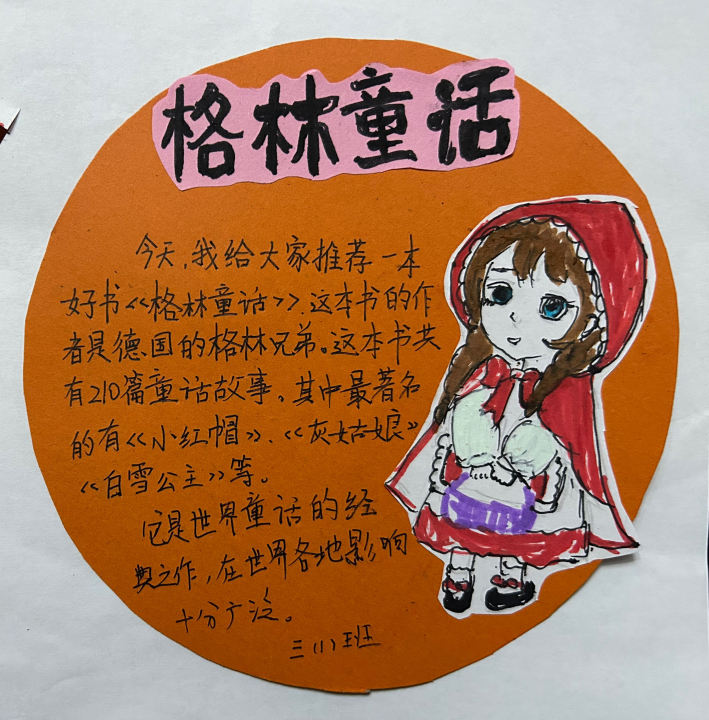 格林童话
今天,我给大家推荐一本
好书《格林童话》.这本书的作
者是德国的格林兄弟。这本书共
有210篇童话故事。其中最著名
的有《小红帽》、《灰姑娘》
《白雪公主》等。
它是世界童话的经
典之作,在世界各地影响
十分广泛。
三(1)班